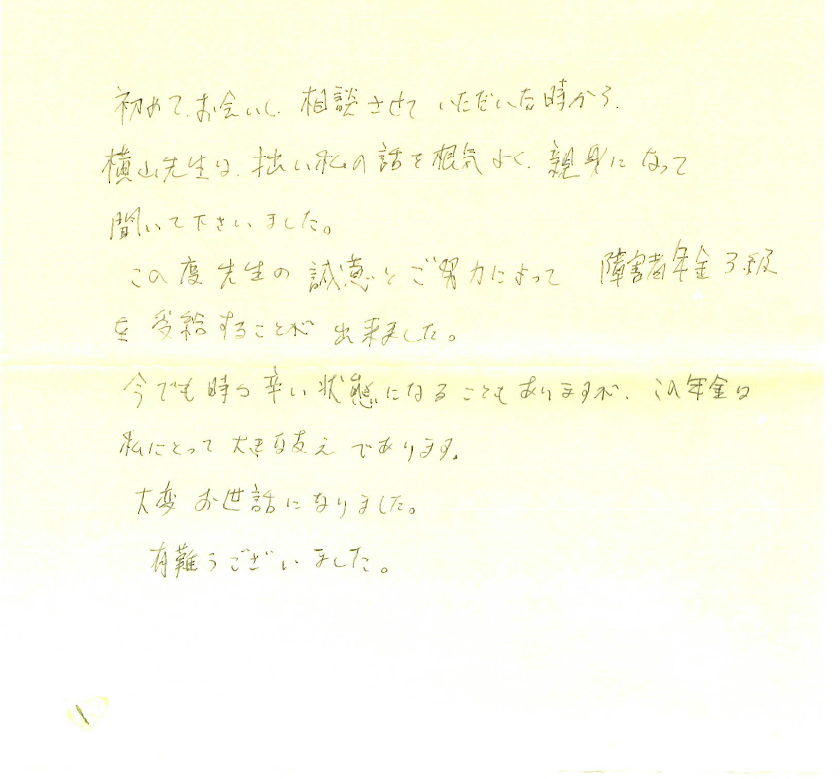 初めてお会いし、相談させていただいた時から、
横山先生は、拙い私の話を根気よく、親身になって
聞いて下さいました。
この度先生の誠意とご努力によって 障害者年金3級
を受給することが出来ました。
今でも時々辛い状態になることもありますが、この年金は
私にとって大きな支えであります。
大変お世話になりました。
有難うございました。